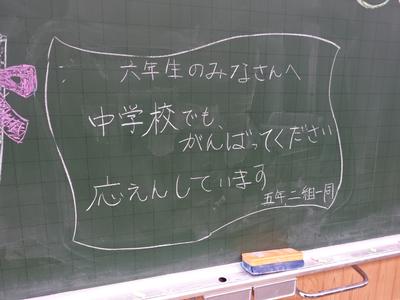 六年生のみなさんへ
中学校でも、
がんばってください
応えんしています
五年二組一同